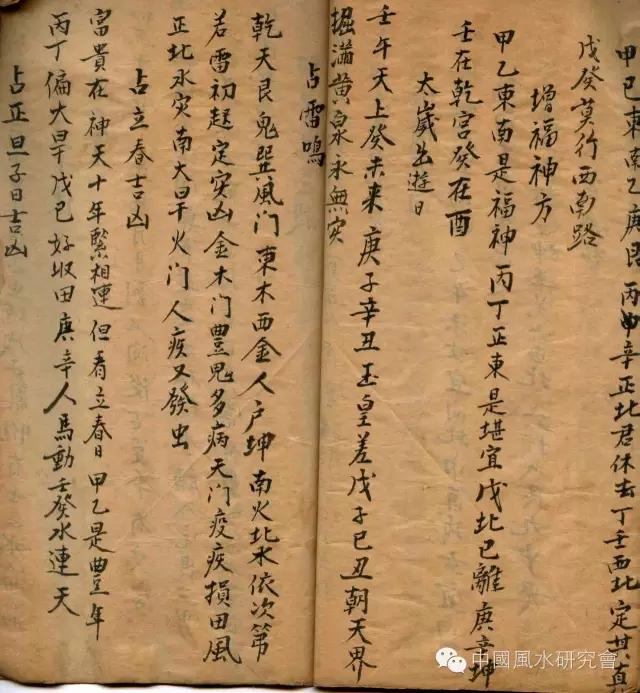 甲巳東南乙庚艮丙申辛正北君休去丁壬西北定其真
戊癸莫行西南路
增福神方
甲乙東南是福神丙丁正東是堪宜戊北巳離庚辛坤
壬在乾宮癸在酉
大歲出遊日
壬午天上癸未来庚子辛丑玉皇差戊子巳丑朝天界
掘滿黄泉永無灾
占雷鳴
乾天艮鬼巽風门東木西金人户坤南火北水依次第
若雷初起定灾凶金木门豊鬼多病天门疫疾損田風
正北水灾南大旱火门人疾又發虫
占立春吉凶
富貴在神天十年緊相連但看立春日甲乙是豊年
丙丁偏大旱戊巳好収田庚辛人馬動壬癸水連天
占正旦子日吉凶
中國風水研究會